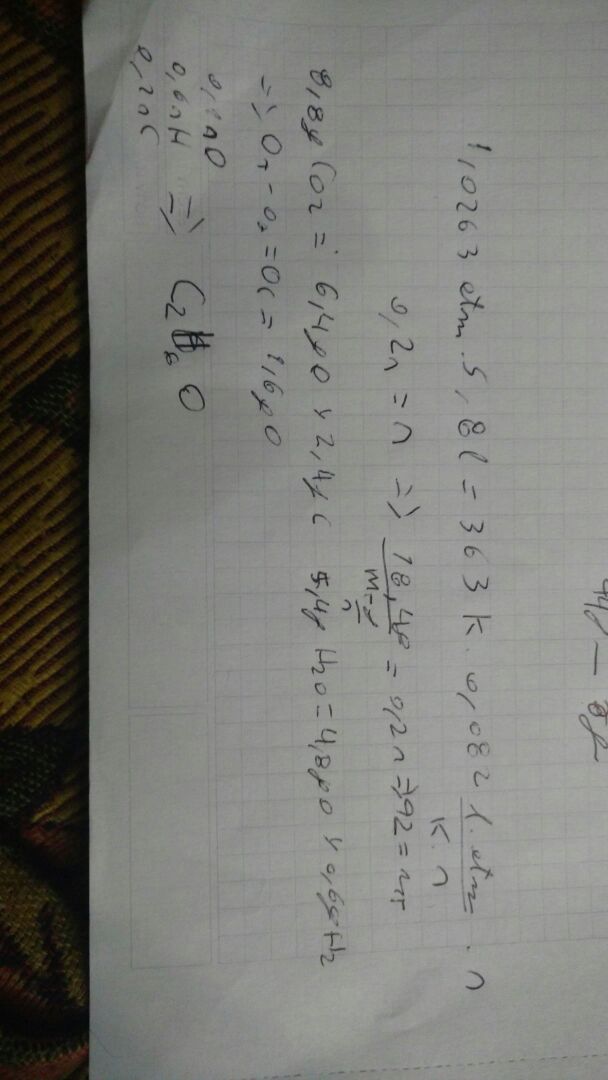 44g - 8g
1,0263 atm . 5,8l = 363 K . 0,082 l.atm/K.n . n
0,2n = n => 18,4g/m = 0,2n => 92 = m
8,8g CO2 = 6,4g O y 2,4g C 5,4g H2O = 4,8g O y 0,6g H2
=> OT - O2 = OC = 1,6g O
0,1n O
0,6n H => C2H6O
0,2n C